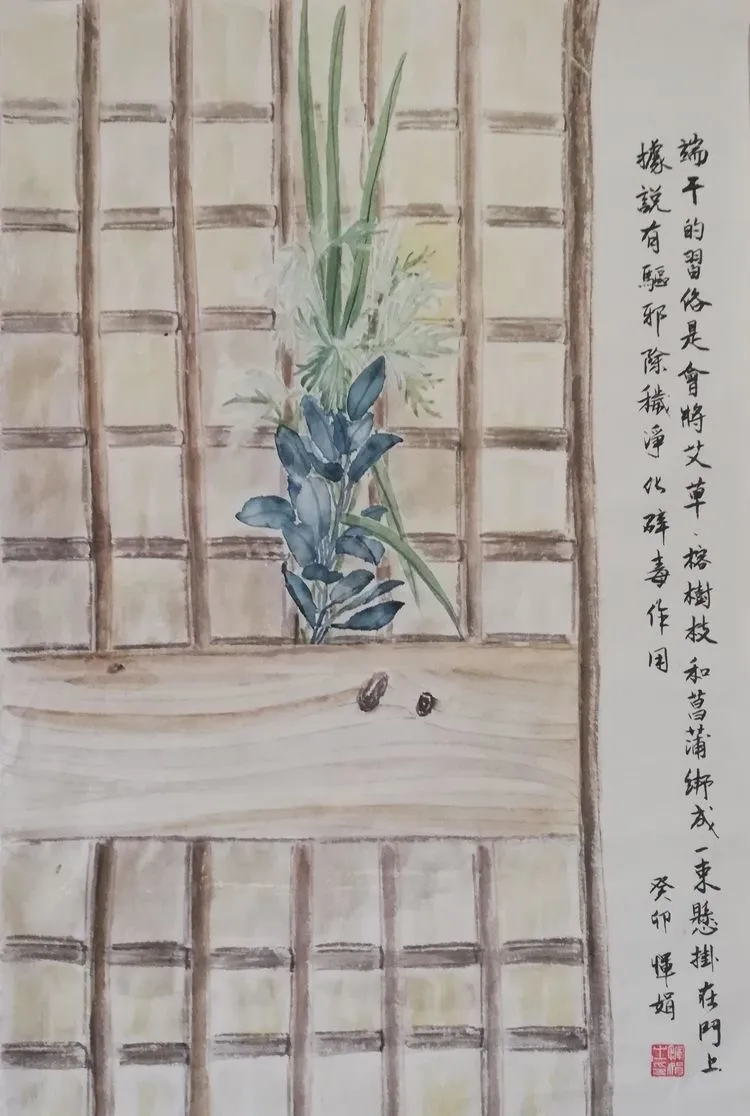 端午的習俗是會將艾草、榕樹枝和菖蒲綁成一束懸掛在門上
據說有驅邪除穢淨化辟毒作用
癸卯 惲娟